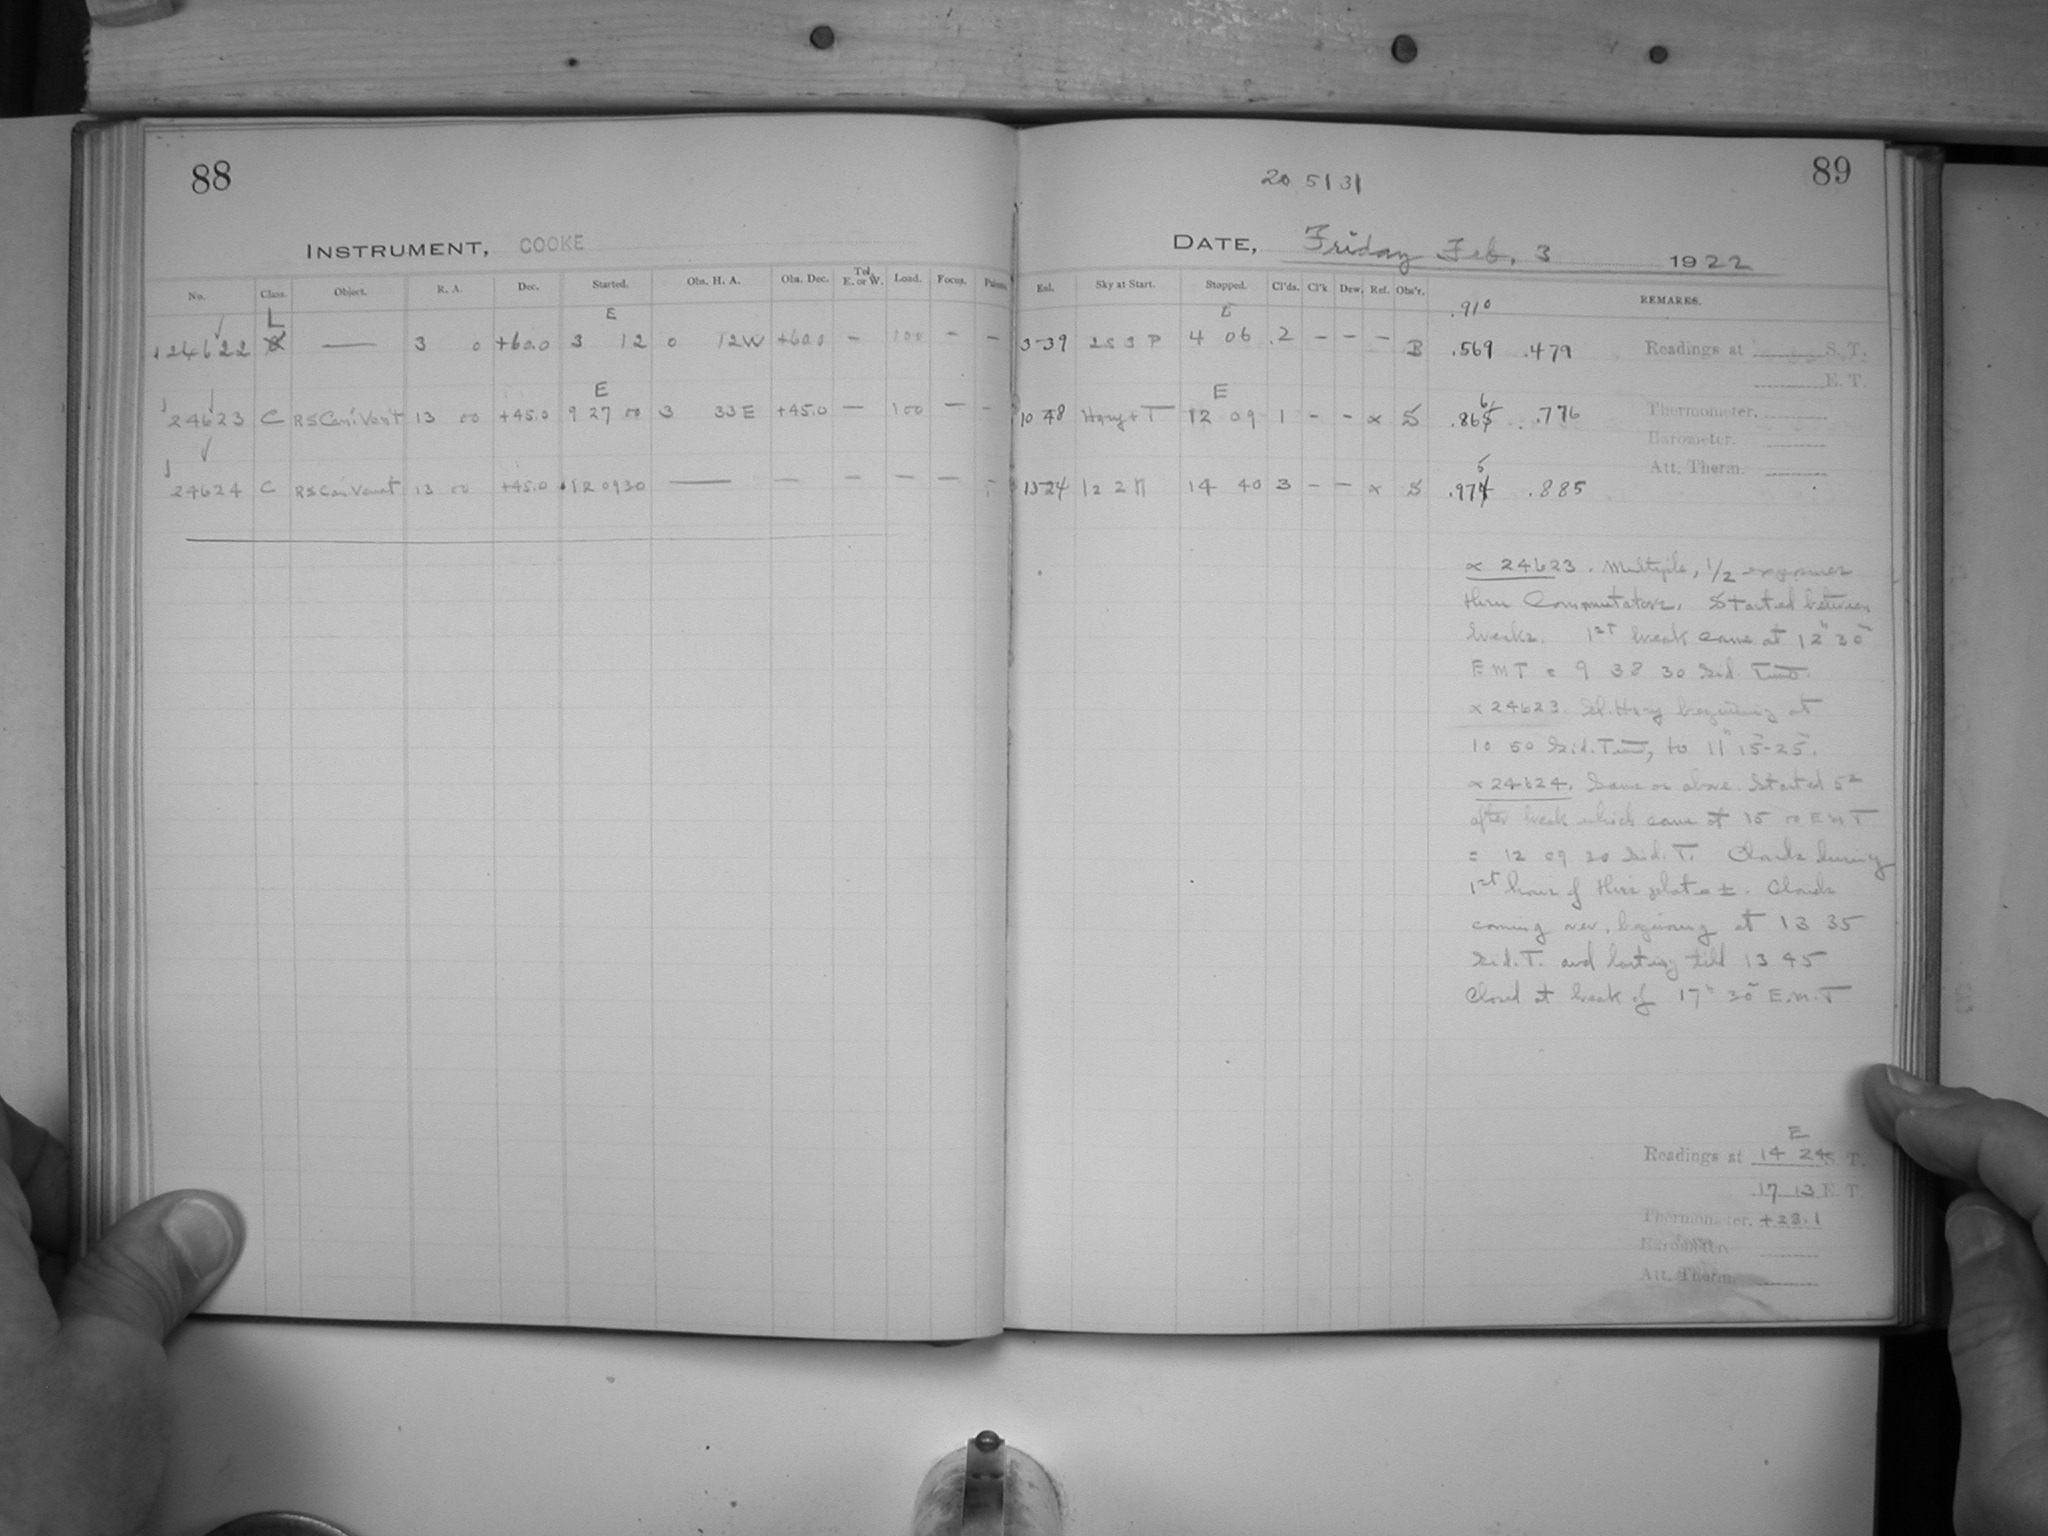 88
INSTRUMENT, COOKE
No. Class. Object. R. A. Dec. Started. Obs. H. A. Obs. Dec. Tel. E. or W. Load. Focus.
L E
24622 3 0 +60.0 3 12 0 12W +60.0 — 100 — —
E
24623 C RS Can. Venat 13 00 +45.0 9 27 00 3 33 E +45.0 — 100 — —
24624 C RS Can. Venat 13 00 +45.0 12 09 30 — — — — — —
20 5131
89
DATE, Friday Feb. 3 1922
Exl. Sky at Start. Stopped. Cl'ds. Cl'k Dew. Ref. Obs'r. REMARKS.
E .910
3-39 4 06 .2 – – – B .569 .479 Readings at S. T.
E. T.
E 6
10 48 Hazy + T 12 09 1 – – α S .865 .776 Thermometer.
Barometer.
5 Att. Therm.
13-24 14 40 3 – – α S .974 .885
α 24623. Multiple, 1/2 exposures
thru Commutator. Started between
breaks. 1st break came at 12h 30m
E M T = 9 38 30 Sid. Time.
α 24623. Sl. Hazy beginning at
10 50 Sid. Time, to 11h 15-25m.
α 24624. Same as above. Started 5s
after break which came at 15 00 E M T
= 12 09 20 Sid. T. Clouds during
1st hour of this plate ±. Clouds
coming over, beginning at 13 35
Sid. T. and lasting till 13 45
Closed at break of 17h 30m E.M.T
E
Readings at 14 24 S. T.
17 13 E. T.
Thermometer. +28.1
Barometer.
Att. Therm.